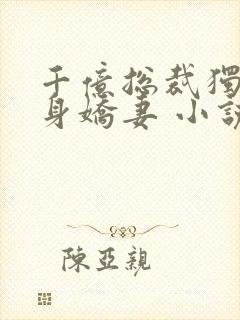 千億総裁獨
身嬌妻 小說
陳亞親